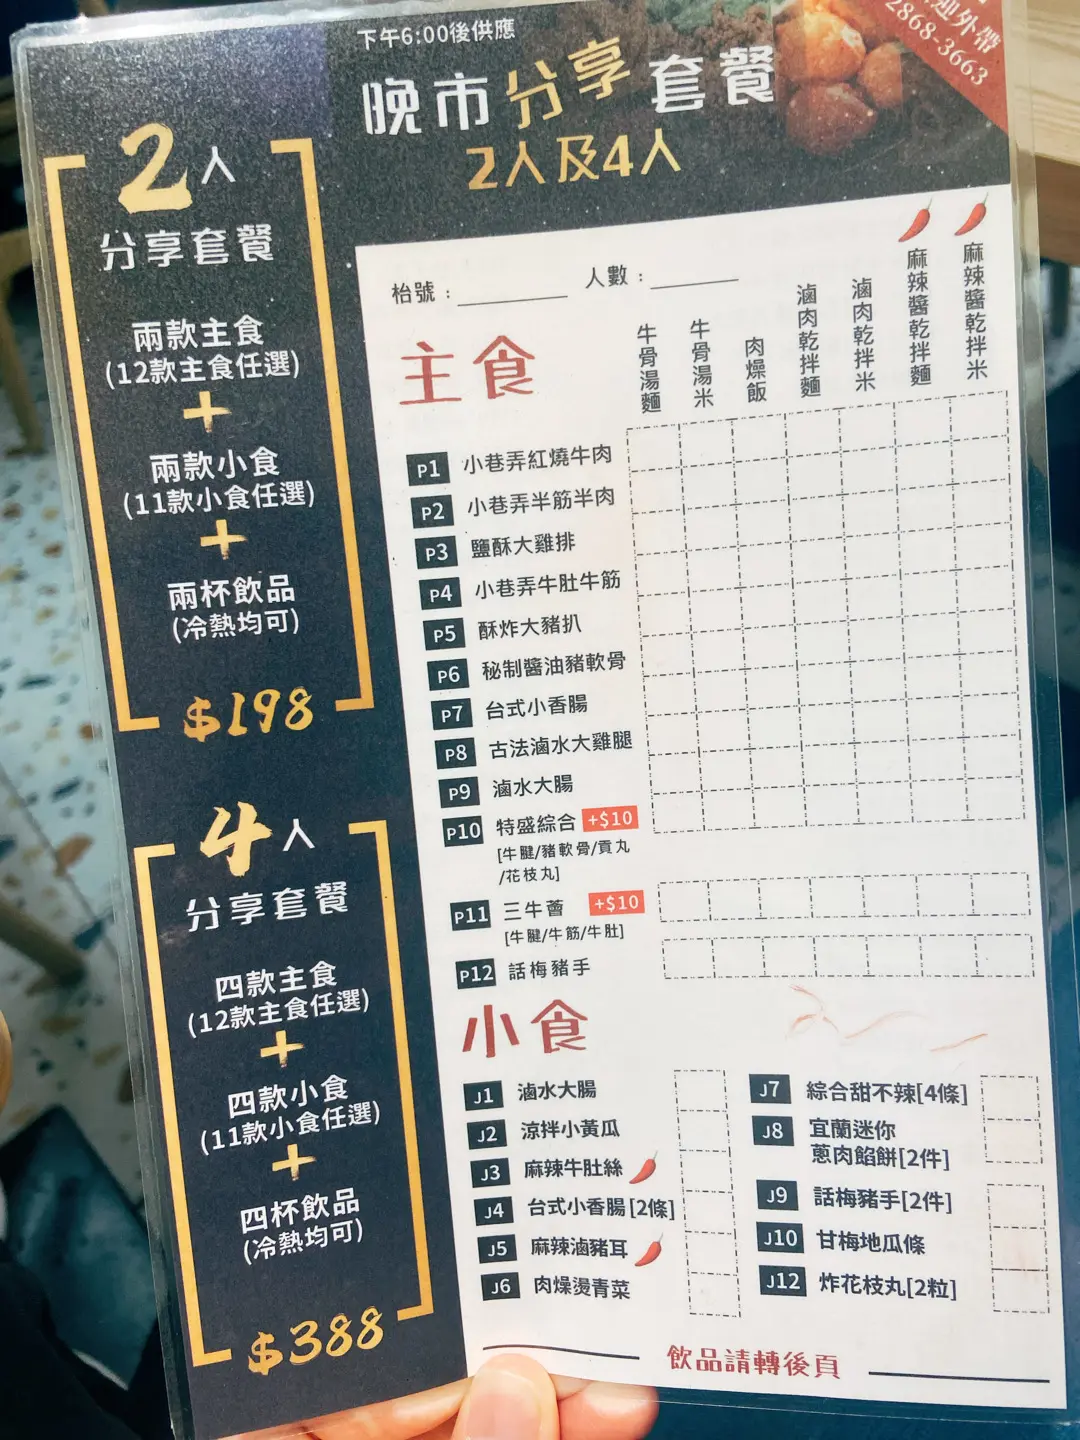 下午6:00後供應
晚市分享套餐
2人及4人
迎外帶
2868-3663
2人
分享套餐
兩款主食
(12款主食任選)
+
兩款小食
(11款小食任選)
+
兩杯飲品
(冷熱均可)
$198
4人
分享套餐
四款主食
(12款主食任選)
+
四款小食
(11款小食任選)
+
四杯飲品
(冷熱均可)
$388
枱號：
人數：
主食
牛骨湯麵
牛骨湯米
肉燥飯
滷肉乾拌麵
滷肉乾拌米
麻辣醬乾拌麵
麻辣醬乾拌米
P1 小巷弄紅燒牛肉
P2 小巷弄半筋半肉
P3 鹽酥大雞排
P4 小巷弄牛肚牛筋
P5 酥炸大豬扒
P6 秘制醬油豬軟骨
P7 台式小香腸
P8 古法滷水大雞腿
P9 滷水大腸
P10 特盛綜合 +$10
[牛腱/豬軟骨/貢丸
/花枝丸]
P11 三牛薈 +$10
[牛腱/牛筋/牛肚]
P12 話梅豬手
小食
J1 滷水大腸
J2 涼拌小黃瓜
J3 麻辣牛肚絲
J4 台式小香腸[2條]
J5 麻辣滷豬耳
J6 肉燥燙青菜
J7 綜合甜不辣[4條]
J8 宜蘭迷你
蔥肉餡餅[2件]
J9 話梅豬手[2件]
J10 甘梅地瓜條
J12 炸花枝丸[2粒]
飲品請轉後頁